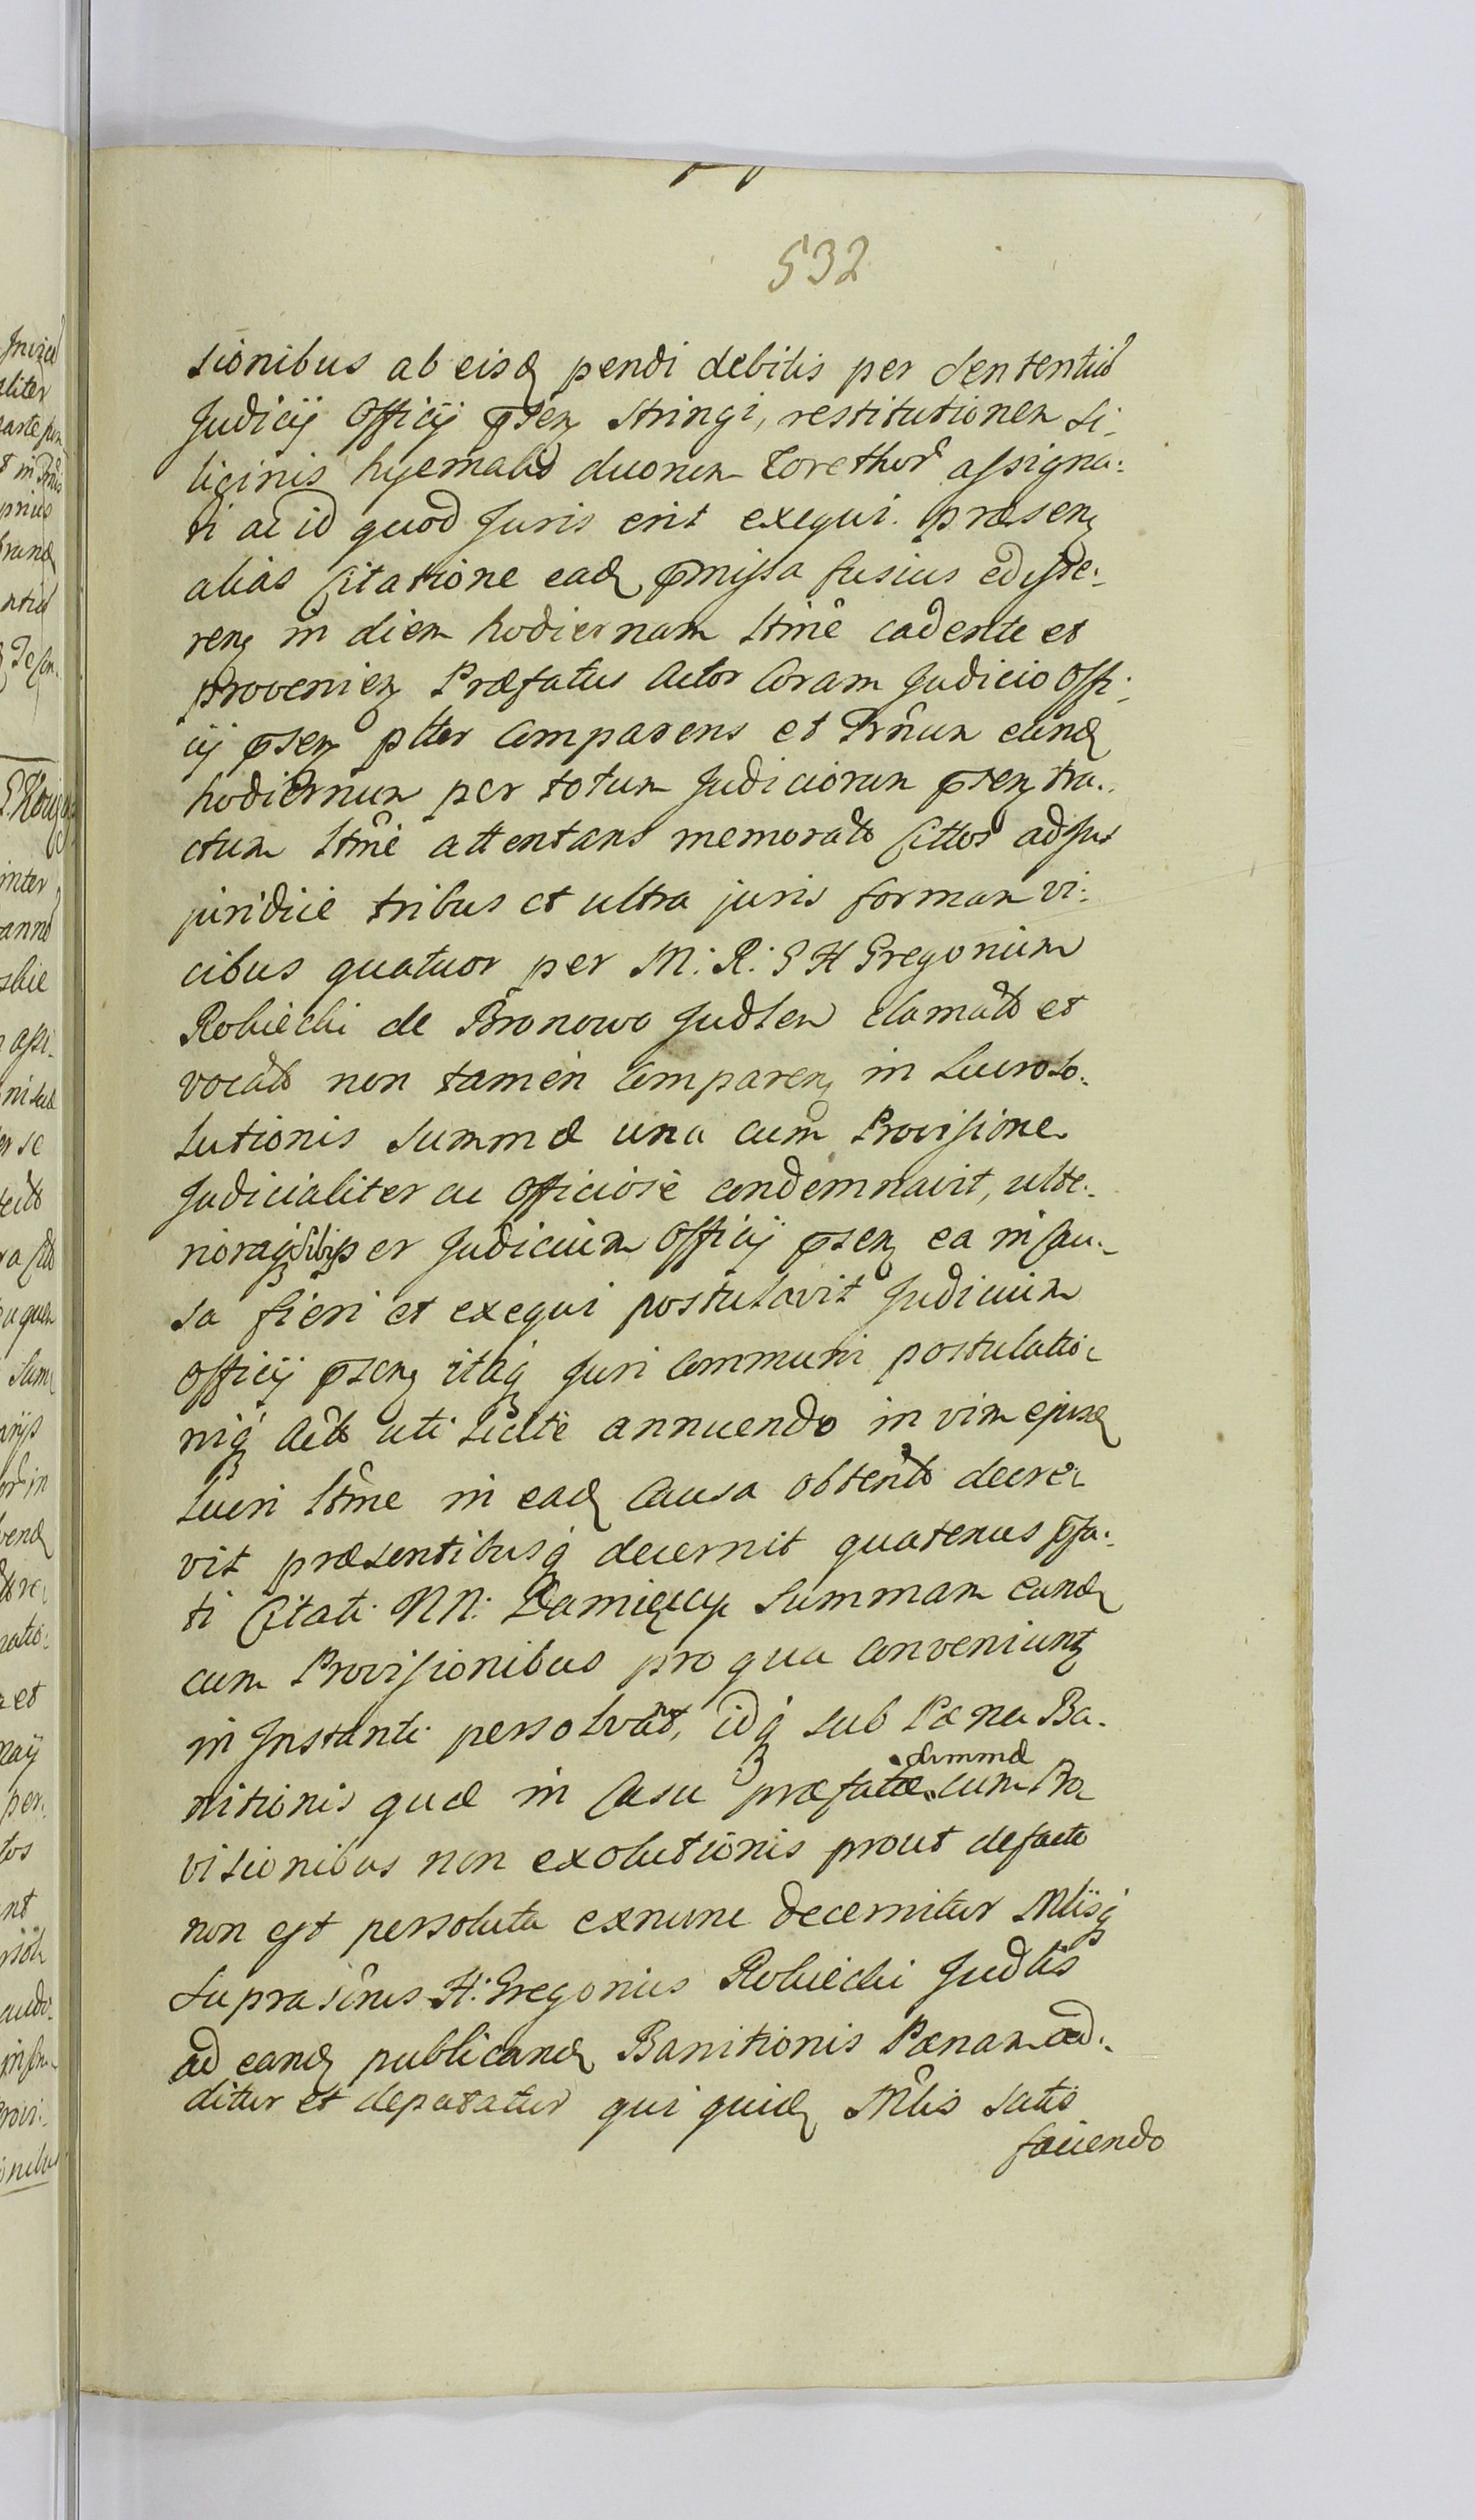 532
sionibus ab eisđ pendi debitis per Sententiã
Judicij Officij p̄sen stringi, restitutionem Si-
liginis hyemalis duorum Corethor̃ assigna:
ri ac id quod Juris erit exequi. præsen
alias Citatione eađ p̄missa fusius edisse:
ren in diem hodiernam ltimê cadente et
provenien Præfatus Actor Coram Judicio Offi:
cij p̄sen plter Comparens et Trñum eunđ
hodiernum per totum Judiciorum p̄sen tra:
ctum ltimê attentans memoratos Cittos ad Jus
juridice tribus et ultra juris formam vi:
cibus quatuor per M: R: G H Gregorium
Robiecki de Bronowo Judlem clamatos et
vocatos non tamen Comparen in Lucro So:
lutionis Summæ una cum Provisione
Judicialiter ac Officiose condemnavit, ulte:
rioraq sibi per Judicium Officij p̄sen ea in Cau:
sa fieri et exequi postulavit Judicium
Officij p̄sen itaq Juri Communi postulatio:
niq Actoris uti licite annuendo in vim ejusđ
lucri ltime in eađ Causa obtento decre:
vit præsentibusq decernit quatenus p̄fa:
ti Citati NN: Summam eanđ
cum Provisionibus pro qua conveniunt
in Instanti persolvant, idq sub Pæna Ba:
nitionis quæ in Casu præfatæ Summæ cum Pro
visionibus non exolutionis prout defacto
non est persoluta exnunc decernitur Mlisq
Suprasc̃rus H: Gregorius Robiecki Judlis
ad eanđ publicanđ Banitionis Pænam ad:
ditur et deputatur qui quiđ Mlis satis
faciendo